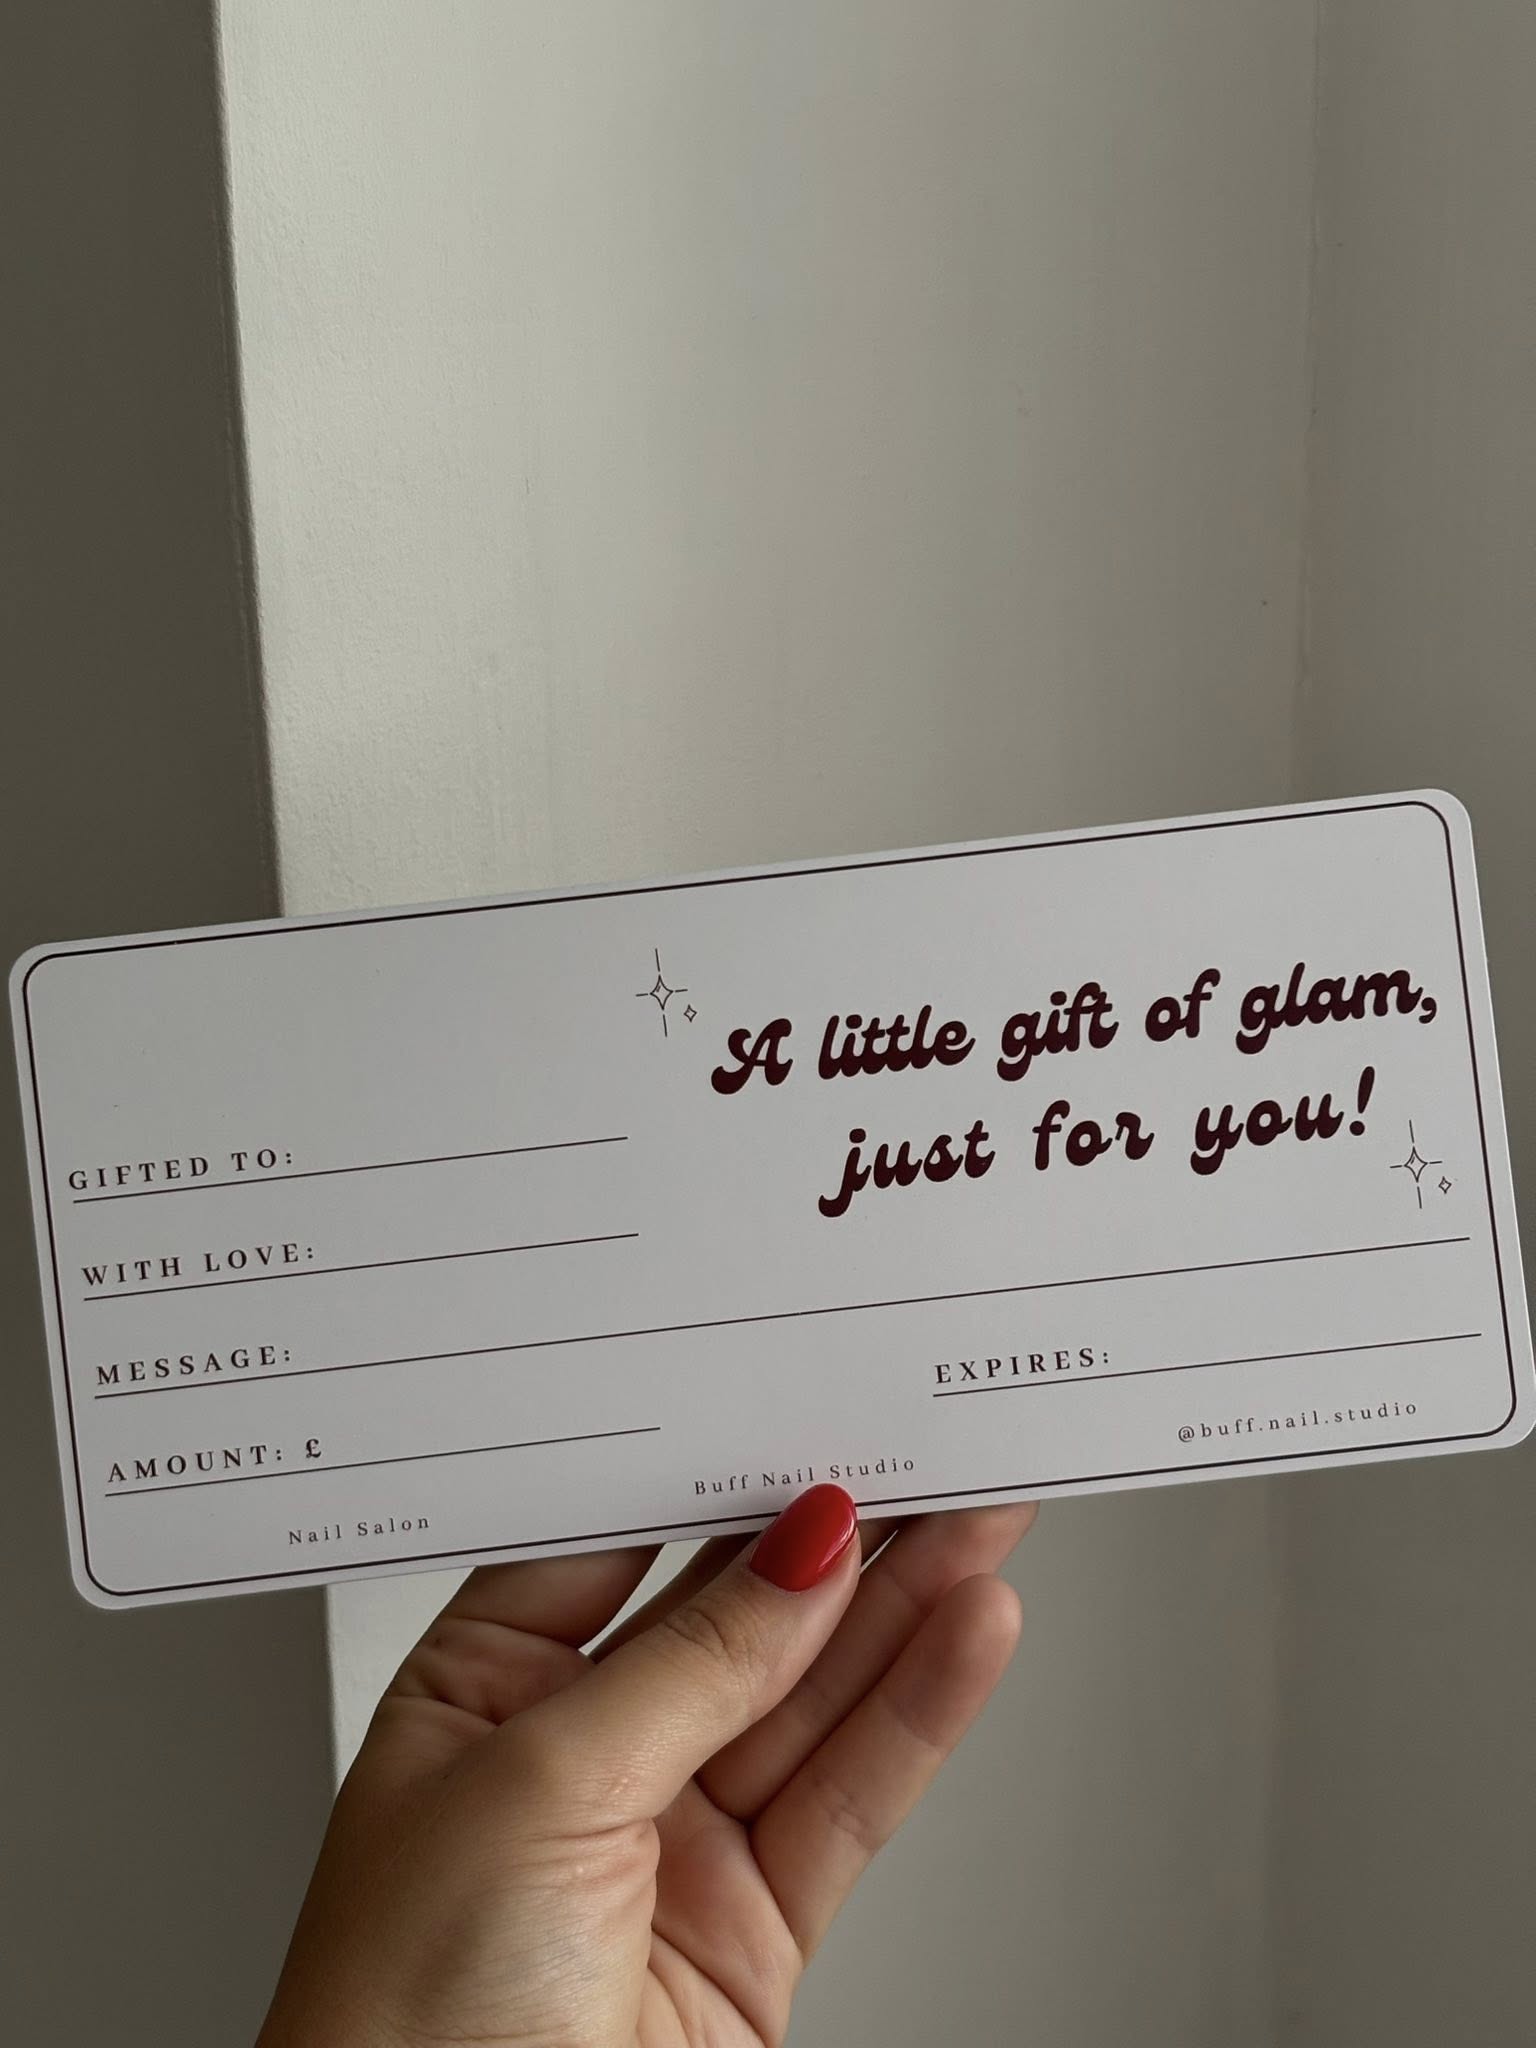 A little gift of glam,
just for you!
GIFTED TO:
WITH LOVE:
MESSAGE:
AMOUNT: £
EXPIRES:
Nail Salon
Buff Nail Studio
@buff.nail.studio